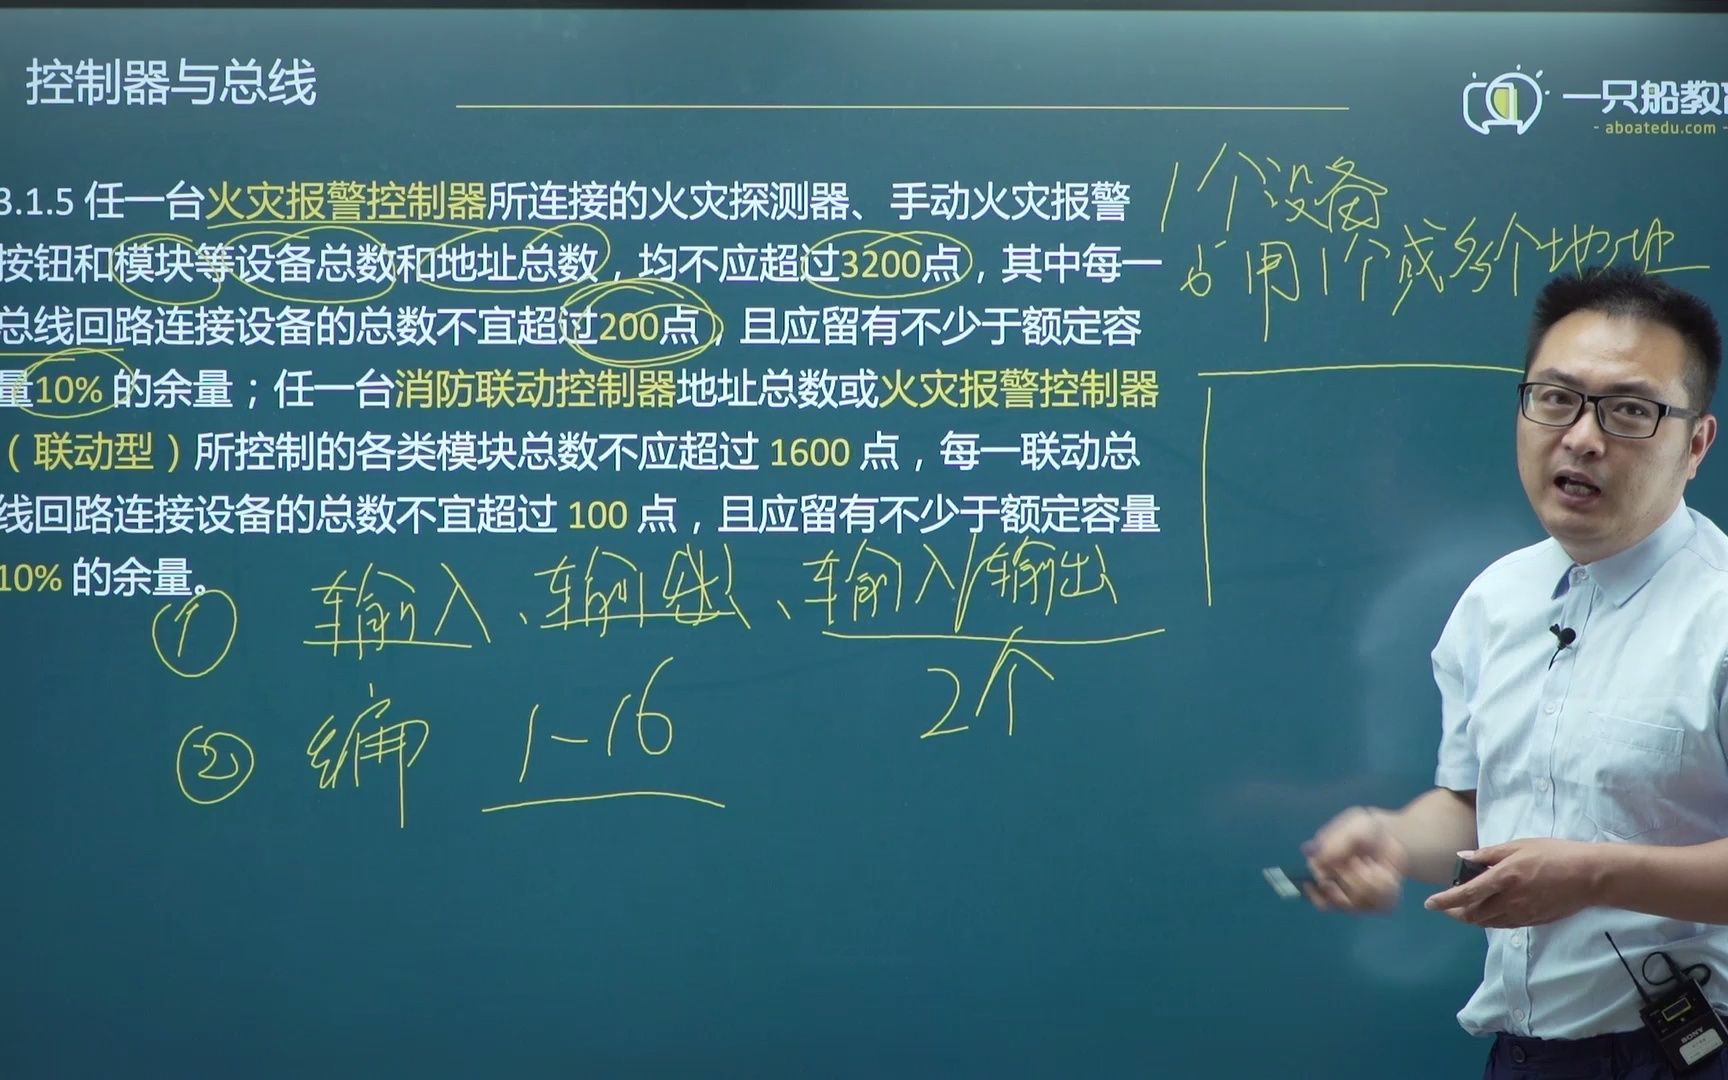 控制器与总线
一只船教育
- aboatedu.com -
3.1.5 任一台火灾报警控制器所连接的火灾探测器、手动火灾报警
按钮和模块等设备总数和地址总数，均不应超过3200点，其中每一
总线回路连接设备的总数不宜超过200点，且应留有不少于额定容
量10% 的余量；任一台消防联动控制器地址总数或火灾报警控制器
（联动型）所控制的各类模块总数不应超过 1600 点，每一联动总
线回路连接设备的总数不宜超过 100 点，且应留有不少于额定容量
10% 的余量。
1个设备
占用1个或多个地址
① 输入、输出、输入/输出
2个
② 编 1-16
SONY